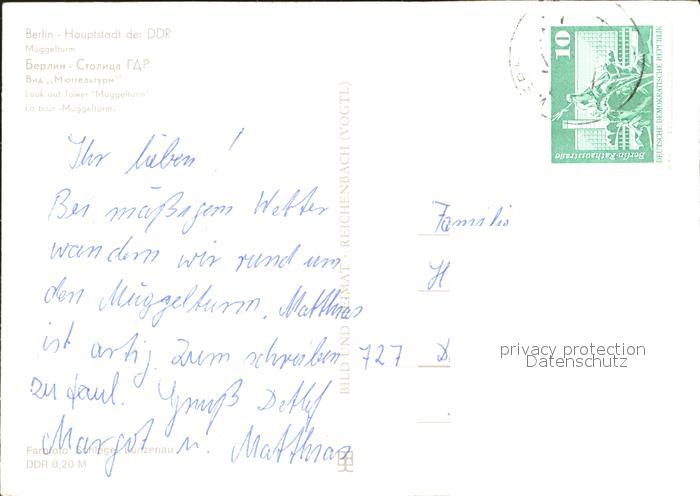 Berlin - Hauptstadt der DDR
Müggelturm
Берлин - Столица ГДР
Вид ,,Мюггельтурм"
Look out Tower "Müggelturm"
La tour «Müggelturm»
Ihr lieben!
Bei mäßigem Wetter
wandern wir rund um
den Müggelturm. Matthias
ist artig. Zum schreiben
zu faul. Gruß Detlef
Margot u. Matthias
Farbfoto: Schlegel, Lunzenau
DDR 0,20 M
BILD UND HEIMAT · REICHENBACH (VOGTL)
10
Berlin-Rathausstraße
DEUTSCHE DEMOKRATISCHE REPUBLIK
Familie
H
727 D
privacy protection
Datenschutz